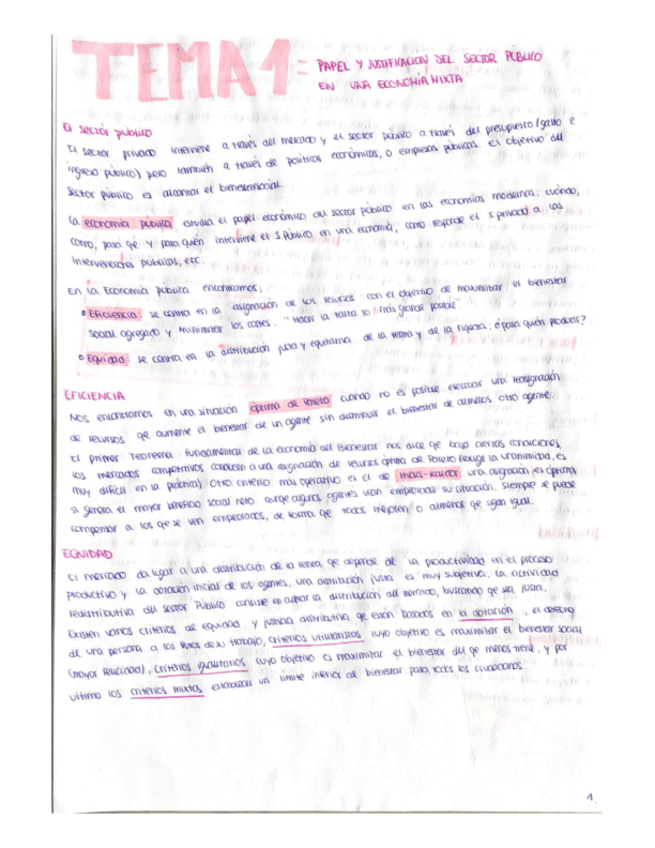 TEMA 1 = PAPEL Y JUSTIFICACIÓN DEL SECTOR PÚBLICO
EN UNA ECONOMÍA MIXTA
El sector público
El sector privado interviene a través del mercado y el sector público a través del presupuesto (gasto e
ingreso público) pero también a través de políticas económicas, o empresas públicas. El objetivo del
Sector público es alcanzar el bienestar social.
La economía pública estudia el papel económico del sector público en las economías modernas: cuándo,
cómo, para qé y para quién interviene el S. Público en una economía, como responde el s. privado a las
intervenciones públicas, etc.
En la Economía Pública encontramos:
• Eficiencia: se centra en la asignación de los recursos con el objetivo de maximizar el bienestar
social agregado y minimizar los costes. "Hacer la tarta lo más grande posible"
• Equidad: se centra en la distribución justa y equitativa de la renta y de la riqueza: ¿para quién producir?
EFICIENCIA
Nos encontramos en una situación óptima de Pareto cuando no es posible efectuar una reasignación
de recursos qe aumente el bienestar de un agente sin disminuir el bienestar de al menos otro agente.
El primer Teorema Fundamental de la Economía del Bienestar nos dice qe bajo ciertas condiciones,
los mercados competitivos conducen a una asignación de recursos óptima de Pareto (exige la unanimidad, es
muy difícil en la práctica). Otro criterio más operativo es el de Hicks-Kaldor: una asignación es óptima
si genera el mayor beneficio social neto aunqe algunos agentes vean empeorada su situación. Siempre se puede
compensar a los qe se ven empeorados, de forma qe todos mejoren o al menos qe sigan igual.
EQUIDAD
El mercado da lugar a una distribución de la renta, qe depende de la productividad en el proceso
productivo y la dotación inicial de los agentes, una distribución justa es muy subjetiva. La actividad
redistributiva del Sector Público consiste en alterar la distribución del mercado, buscando qe sea justa.
Existen varios criterios de equidad y justicia distributiva qe están basados en la dotación, el derecho
de una persona a los frutos de su trabajo, criterios utilitaristas cuyo objetivo es maximizar el bienestar social
(mayor felicidad), criterios igualitarios cuyo objetivo es maximizar el bienestar del qe menos tiene, y por
último los criterios mixtos establecer un límite inferior de bienestar para todos los ciudadanos.
1.